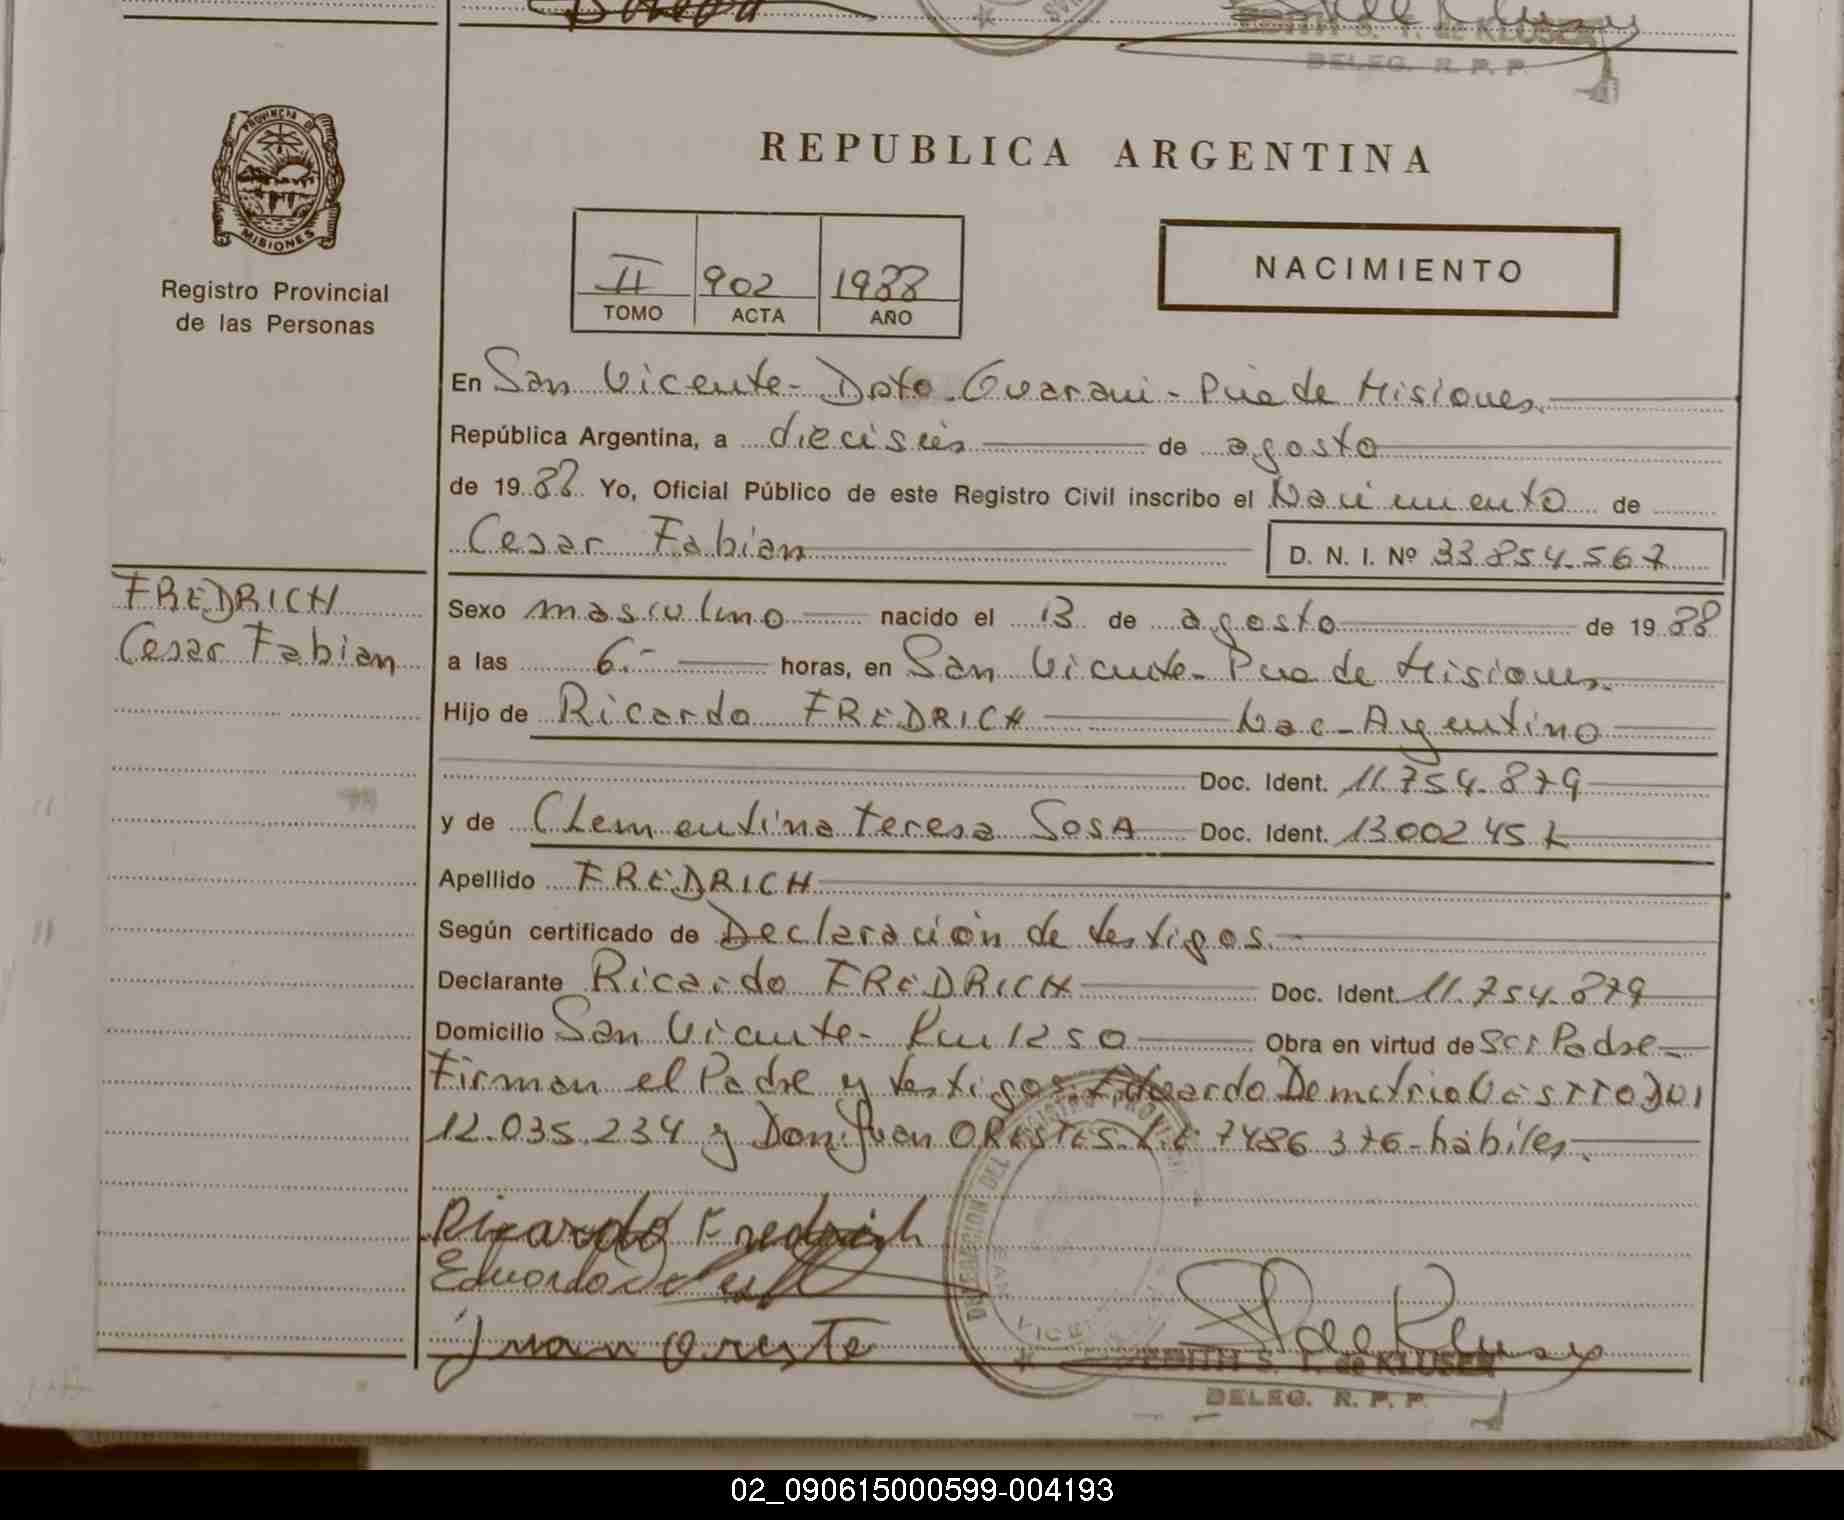 EDITH S. T. de KLUSER
DELEG. R. P. P.
PROVINCIA DE
MISIONES
Registro Provincial
de las Personas
REPUBLICA ARGENTINA
II 902 1988
TOMO ACTA AÑO
NACIMIENTO
En San Vicente - Dpto. Guarani - Pcia de Misiones.
República Argentina, a dieciséis de agosto
de 1988 Yo, Oficial Público de este Registro Civil inscribo el Nacimiento de
Cesar Fabian D. N. I. Nº 33.854.567
FREDRICH
Cesar Fabian
Sexo masculino nacido el 13 de agosto de 1988
a las 6.- horas, en San Vicente - Pcia de Misiones.
Hijo de Ricardo FREDRICH Nac - Argentino
Doc. Ident. 11.754.879
y de Clementina Teresa SOSA Doc. Ident. 13002451
Apellido FREDRICH
Según certificado de Declaración de testigos.-
Declarante Ricardo FREDRICH Doc. Ident. 11.754.879
Domicilio San Vicente - Km 1250 Obra en virtud de ser Padre -
Firman el Padre y testigos Eduardo Demetrio CASTTO DNI
12.035.234 y Don Juan ORESTES L.E 7486376 - hábiles.
Ricardo Fredrich
Eduardo
Juan Oreste
EDITH S. T. de KLUSER
DELEG. R. P. P.
02_090615000599-004193